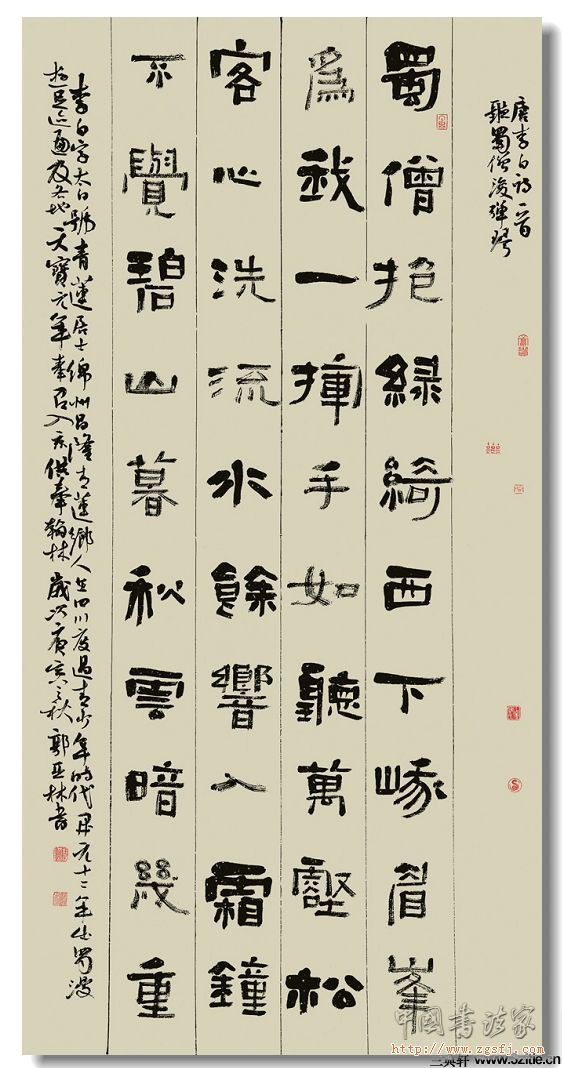 唐李白詩一首
聽蜀僧濬彈琴
蜀僧抱綠綺西下峨眉峯
爲我一揮手如聽萬壑松
客心洗流水餘響入霜鐘
不覺碧山暮秋雲暗幾重
李白字太白號青蓮居士綿州昌隆青蓮鄉人在四川度過青少年時代開元十三年出蜀漫
遊足迹遍及各地天寶元年奉召入京供奉翰林歲次庚寅之秋郭亞林書
中國書法家
http://www.zgsfj.com
三奥轩 www.52fde.cn